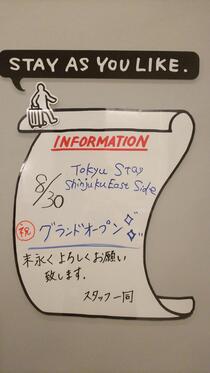 STAY AS YOU LIKE.
INFORMATION
Tokyu Stay
Shinjuku East Side
8/30
祝 グランドオープン
末永くよろしくお願い
致します。
スタッフ一同